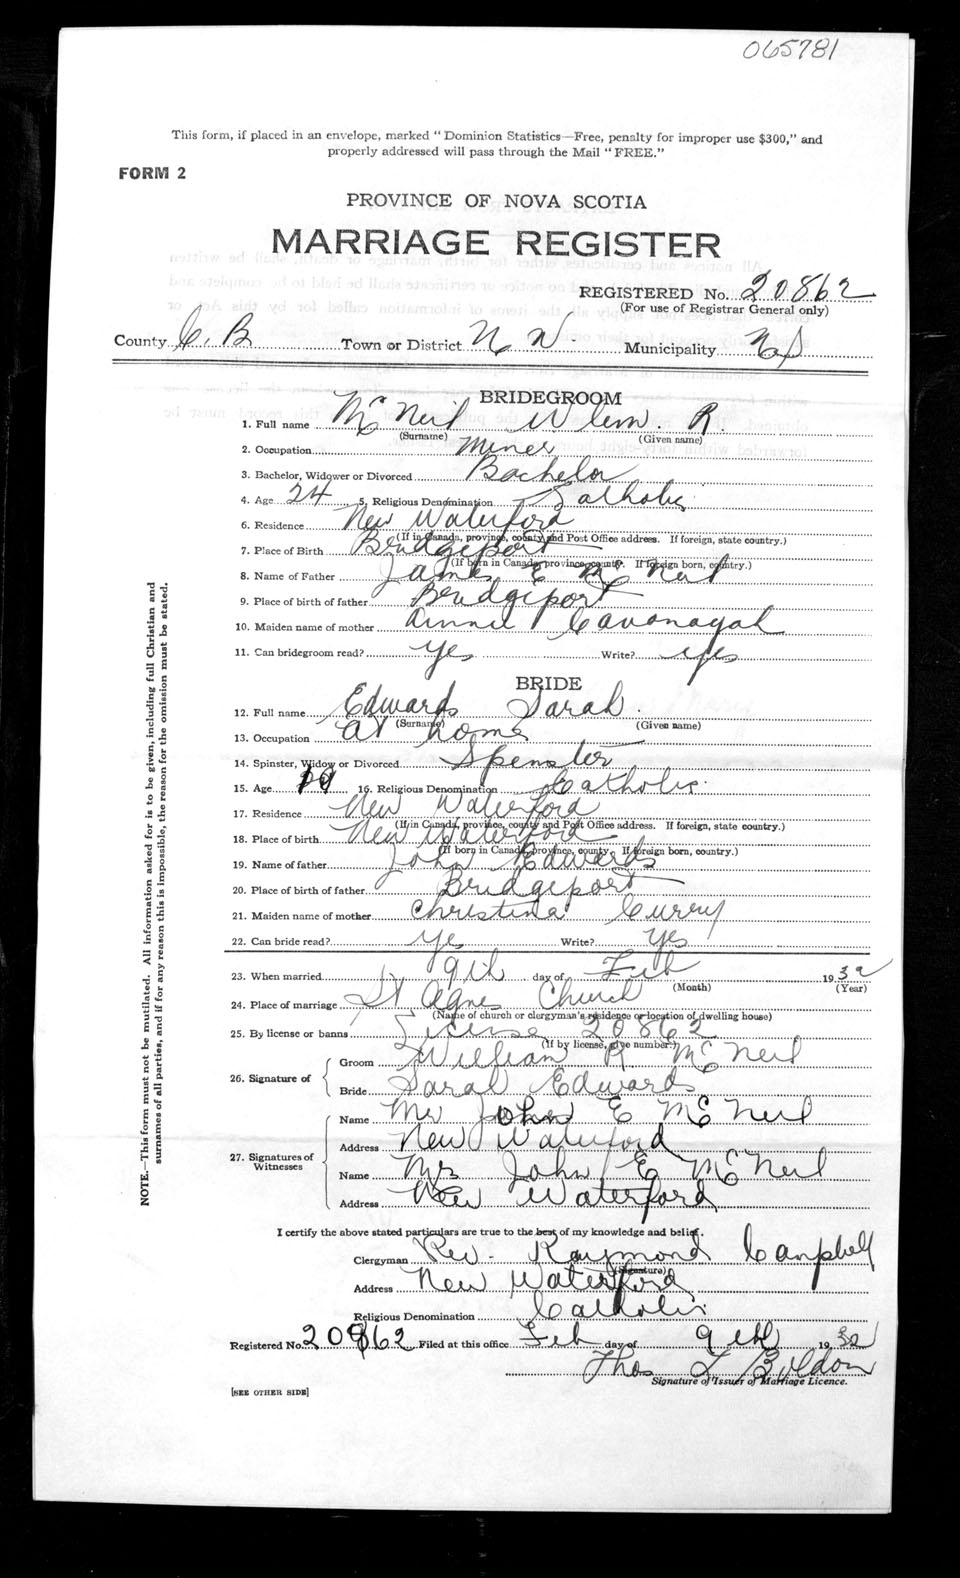 065781
This form, if placed in an envelope, marked "Dominion Statistics—Free, penalty for improper use $300," and
properly addressed will pass through the Mail "FREE."
FORM 2
PROVINCE OF NOVA SCOTIA
MARRIAGE REGISTER
REGISTERED No. 20862
(For use of Registrar General only)
County C. B Town or District N W Municipality N S
BRIDEGROOM
1. Full name McNeil Wlem. R.
(Surname) (Given name)
2. Occupation Miner
3. Bachelor, Widower or Divorced Bachelor
4. Age 24 5. Religious Denomination Catholic
6. Residence New Waterford
(If in Canada, province, county and Post Office address. If foreign, state country.)
7. Place of Birth Bridgeport
(If born in Canada, province, county. If foreign born, country.)
8. Name of Father James E McNeil
9. Place of birth of father Bridgeport
10. Maiden name of mother Annie Cavanagah
11. Can bridegroom read? yes Write? yes
BRIDE
12. Full name Edwards Sarah.
(Surname) (Given name)
13. Occupation at home
14. Spinster, Widow or Divorced Spenster
15. Age 16. Religious Denomination Catholic.
17. Residence New Waterford
(If in Canada, province, county and Post Office address. If foreign, state country.)
18. Place of birth New Waterford
(If born in Canada, province, county. If foreign born, country.)
19. Name of father John Edwards
20. Place of birth of father Bridgeport
21. Maiden name of mother Christina Curry
22. Can bride read? yes Write? yes
23. When married 9th day of Feb 1932
(Month) (Year)
24. Place of marriage St Agnes Church
(Name of church or clergyman's residence or location of dwelling house)
25. By license or banns License 20862
(If by license, give number.)
26. Signature of
Groom William R McNeil
Bride Sarah Edwards
27. Signatures of Witnesses
Name Mr John E McNeil
Address New Waterford
Name Mrs John E McNeil
Address New Waterford
I certify the above stated particulars are true to the best of my knowledge and belief.
Clergyman Rev. Raymond Campbell
(Signature)
Address New Waterford
Religious Denomination Catholic
Registered No. 20862 Filed at this office Feb day of 9th 1932
Thos L
Signature of Issuer of Marriage Licence.
[SEE OTHER SIDE]
NOTE.—This form must not be mutilated. All information asked for is to be given, including full Christian and
surnames of all parties, and if for any reason this is impossible, the reason for the omission must be stated.